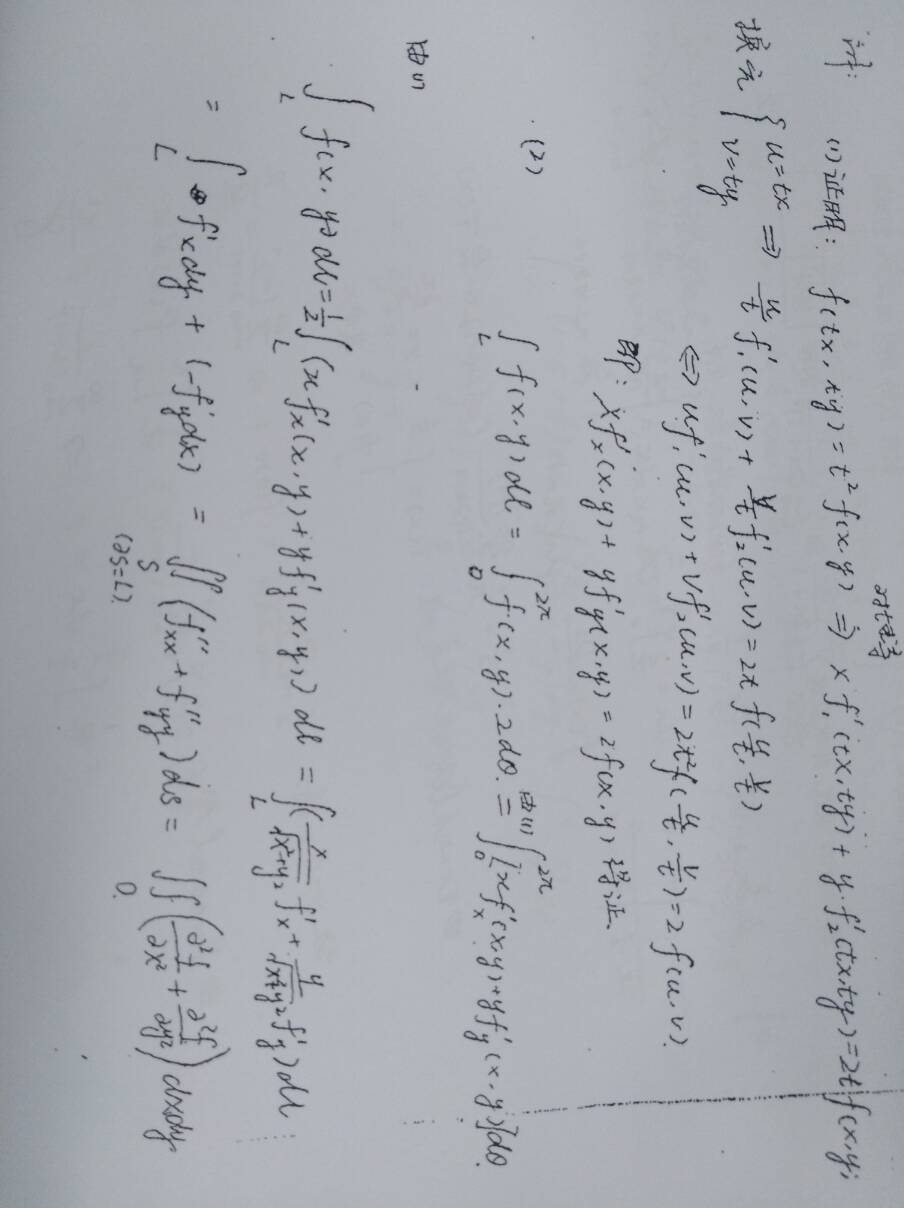 证:
(1) 证明: f(tx, ty) = t² f(x,y) ⇒ x f₁'(tx, ty) + y·f₂'(tx,ty) = 2t f(x,y)
对t求导
换元 { u=tx v=ty ⇒ u/t f₁'(u,v) + v/t f₂'(u,v) = 2t f(u/t, v/t)
⇔ u f₁'(u,v) + v f₂'(u,v) = 2t² f(u/t, v/t) = 2 f(u,v).
即: x fₓ'(x,y) + y f'y(x,y) = 2 f(x,y) 得证.
(2) ∫_L f(x,y) dl = ∫₀^{2π} f(x,y)·2dθ. 由(1) = ∫₀^{2π} [x fₓ'(x,y) + y f'y(x,y)] dθ.
由(1)
∫_L f(x,y) dl = 1/2 ∫_L (x fₓ'(x,y) + y f'y(x,y)) dl = ∫_L (x/√(x²+y²) f'x + y/√(x²+y²) f'y) dl
= ∫_L f'x dy + (-f'y dx) = ∬_S (f''xx + f''yy) ds = ∬_D (∂²f/∂x² + ∂²f/∂y²) dxdy
(∂S=L).